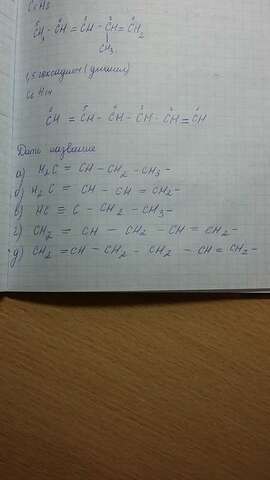 C₆H₈
⁶CH₃ - ⁵CH = ⁴CH - ³CH = ²CH₂
CH₃
1,5 гексадиен (диаллил)
C₆H₁₄
⁶CH = ⁵CH - ⁴CH - ³CH - ²CH = ¹CH
Дать название
а) H₂C = CH - CH₂ - CH₃ -
б) H₂C = CH - CH = CH₂ -
в) HC ≡ C - CH₂ - CH₃ -
г) CH₂ = CH - CH₂ - CH = CH₂ -
д) CH₂ = CH - CH₂ - CH₂ - CH = CH₂ -